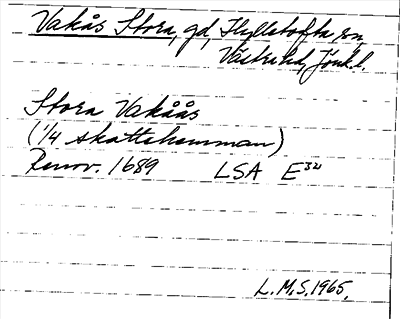 Vakås Stora, gd, Hylletofta sn
Västra hd, Jönk.l.
Stora Vakåås
(1/4 skattehemman)
Renov. 1689 LSA E³²
L.M.S. 1965.